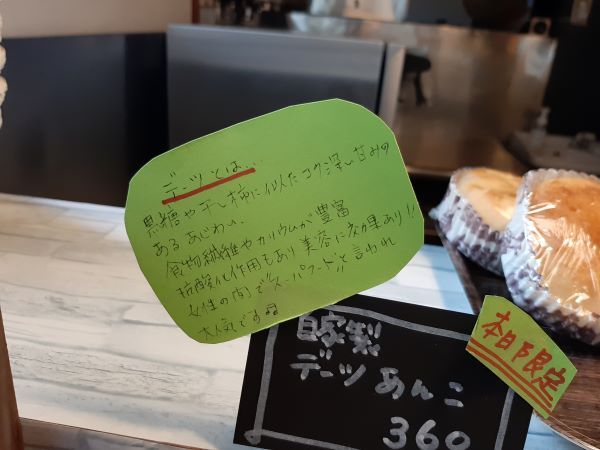 デーツとは…
黒糖や干し柿に似たコク深い甘みの
あるあじわい。
食物繊維やカリウムが豊富
抗酸化作用もあり美容に効果あり!!
女性の間で"スーパーフード"と言われ
大人気です♫
自家製
デーツあんこ
360
本日限定